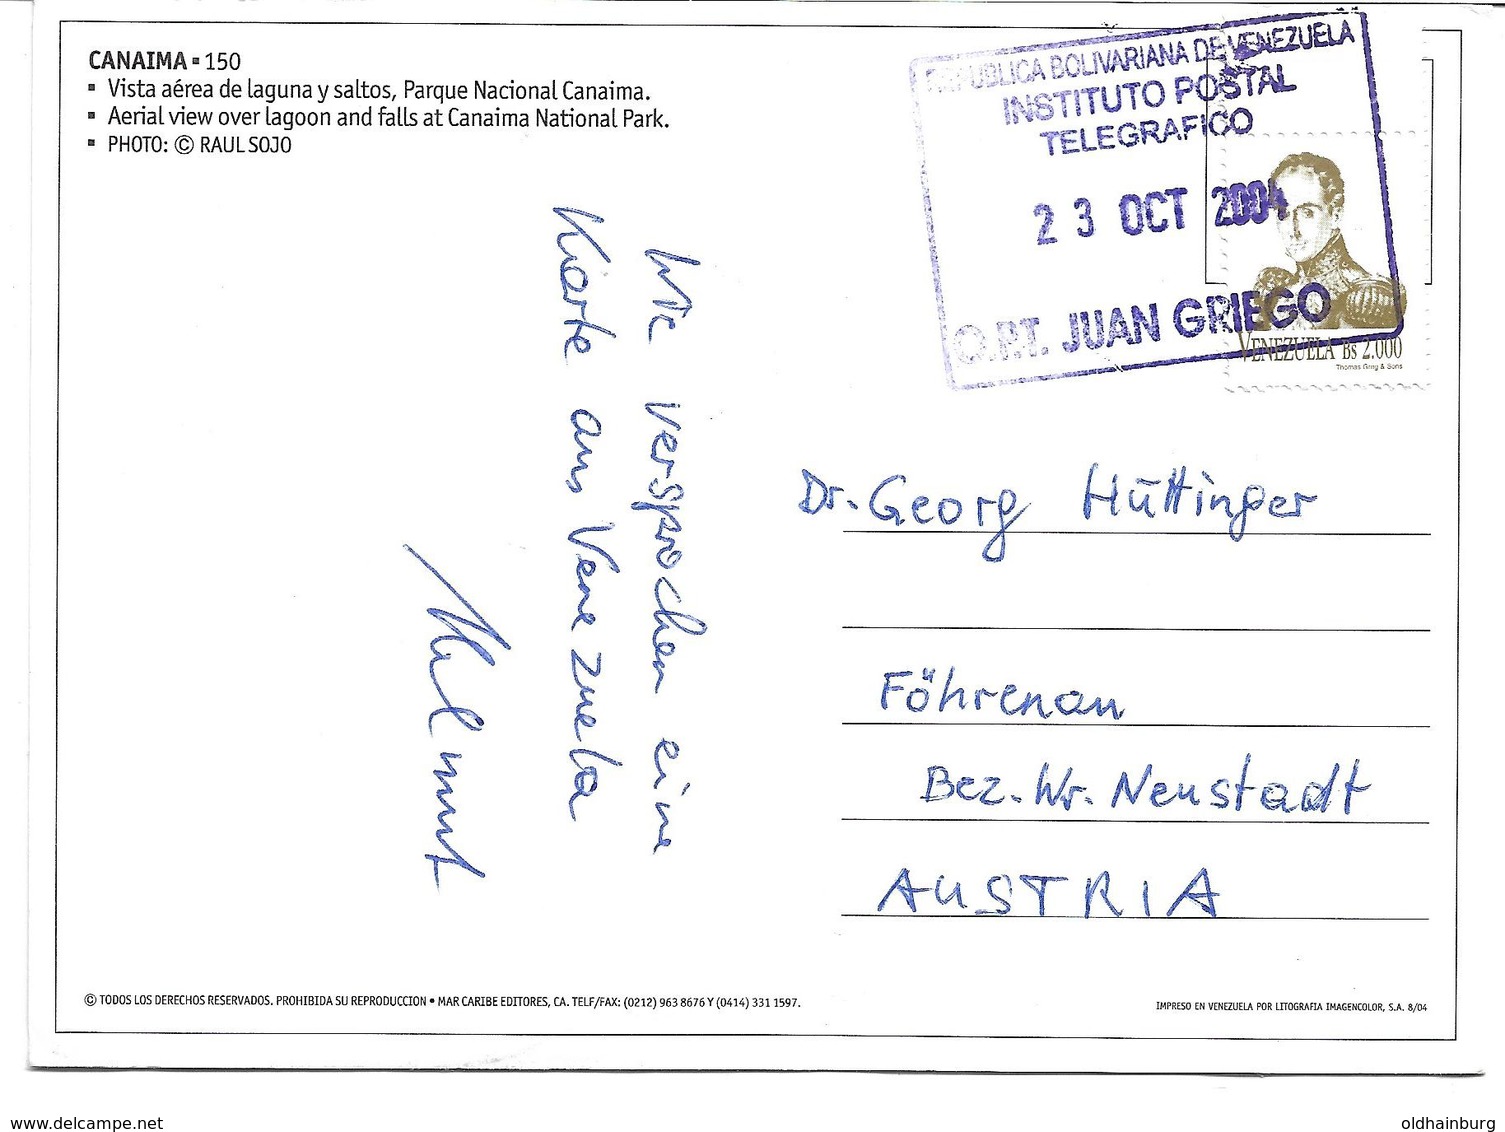 CANAIMA ▪ 150
▪ Vista aérea de laguna y saltos, Parque Nacional Canaima.
▪ Aerial view over lagoon and falls at Canaima National Park.
▪ PHOTO: © RAUL SOJO
REPUBLICA BOLIVARIANA DE VENEZUELA
INSTITUTO POSTAL
TELEGRAFICO
23 OCT 2004
O.P.T. JUAN GRIEGO
VENEZUELA Bs 2.000
Thomas Greg & Sons
Wie versprochen eine
Karte aus Venezuela
Helmut
Dr. Georg Hüttinger
Föhrenau
Bez. Wr. Neustadt
AUSTRIA
© TODOS LOS DERECHOS RESERVADOS. PROHIBIDA SU REPRODUCCION • MAR CARIBE EDITORES, CA. TELF/FAX: (0212) 963 8676 Y (0414) 331 1597.
IMPRESO EN VENEZUELA POR LITOGRAFIA IMAGENCOLOR, S.A. 8/04
www.delcampe.net
oldhainburg